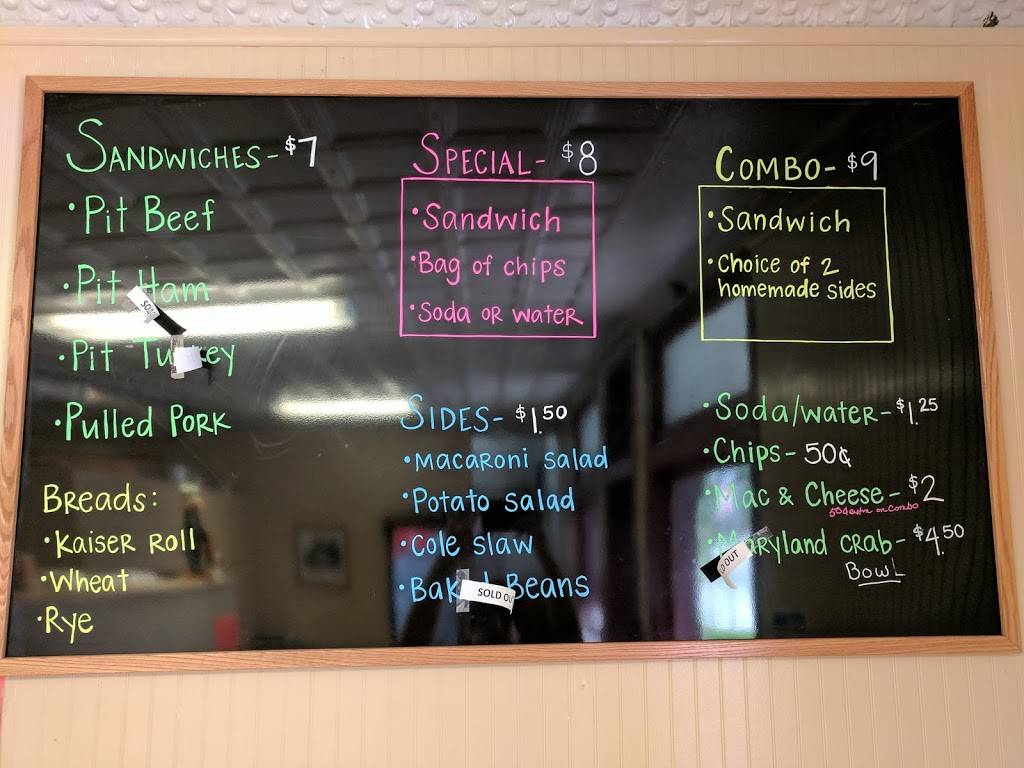 SANDWICHES- $7
• Pit Beef
• Pit Ham
SOLD
• Pit Turkey
• Pulled PORK
BREADS:
• KAISER ROLL
• Wheat
• Rye
SPECIAL- $8
• Sandwich
• Bag of chips
• Soda or water
SIDES- $1.50
• Macaroni salad
• Potato salad
• Cole slaw
• Baked Beans
SOLD OUT
COMBO- $9
• Sandwich
• Choice of 2
homemade sides
• Soda/water- $1.25
• Chips- 50¢
• Mac & Cheese- $2
50¢ extra on combo
• Maryland CRAB- $4.50
BOWL
SOLD OUT